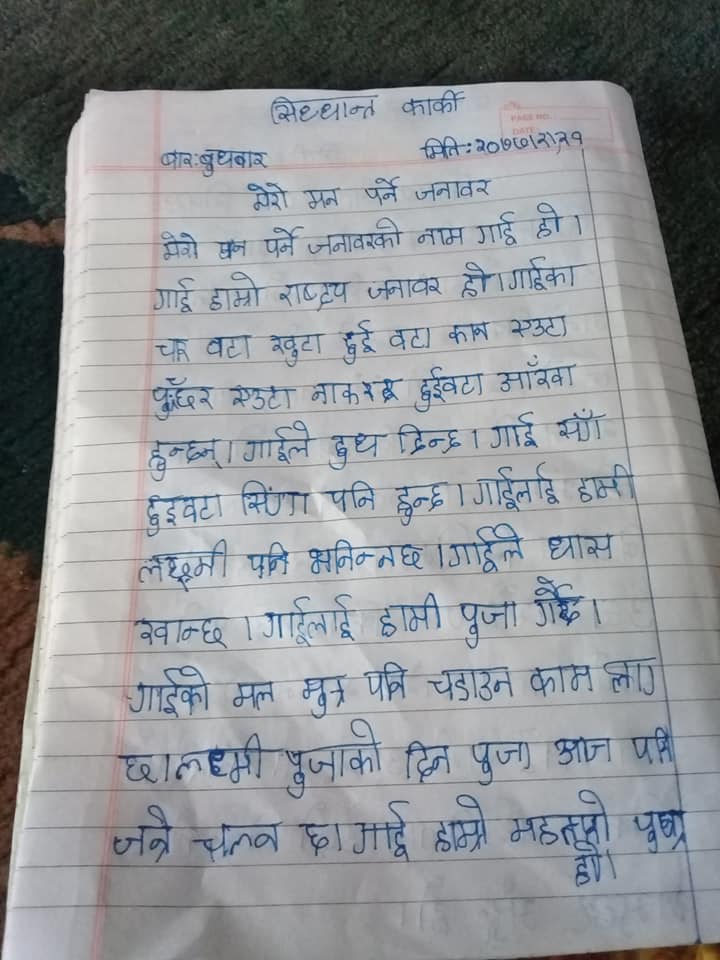 सिध्धान्त कार्की
PAGE NO.
DATE:
बार:बुधबार
मिति:२०७७।२।२१
मेरो मन पर्ने जनावर
मेरो मन पर्ने जनावरको नाम गाई हो।
गाई हाम्रो राष्ट्रिय जनावर हो।गाईका
चार वटा खुटा दुई वटा कान एउटा
पुँछर एउटा नाक दुईवटा आँखा
हुन्छन्।गाईले दुध दिन्छ।गाई सँग
दुइवटा सिंग पनि हुन्छ।गाईलाई हामी
लक्ष्मी पनि भनिन्नछ।गाईले घास
खान्छ।गाईलाई हामी पुजा गर्छै।
गाईको मल मुत्र पनि चडाउन काम लाग
छ।लक्ष्मी पुजाको दिन पुजा आज पनि
जन्ने चलन छ।गाई हाम्रो
हो।